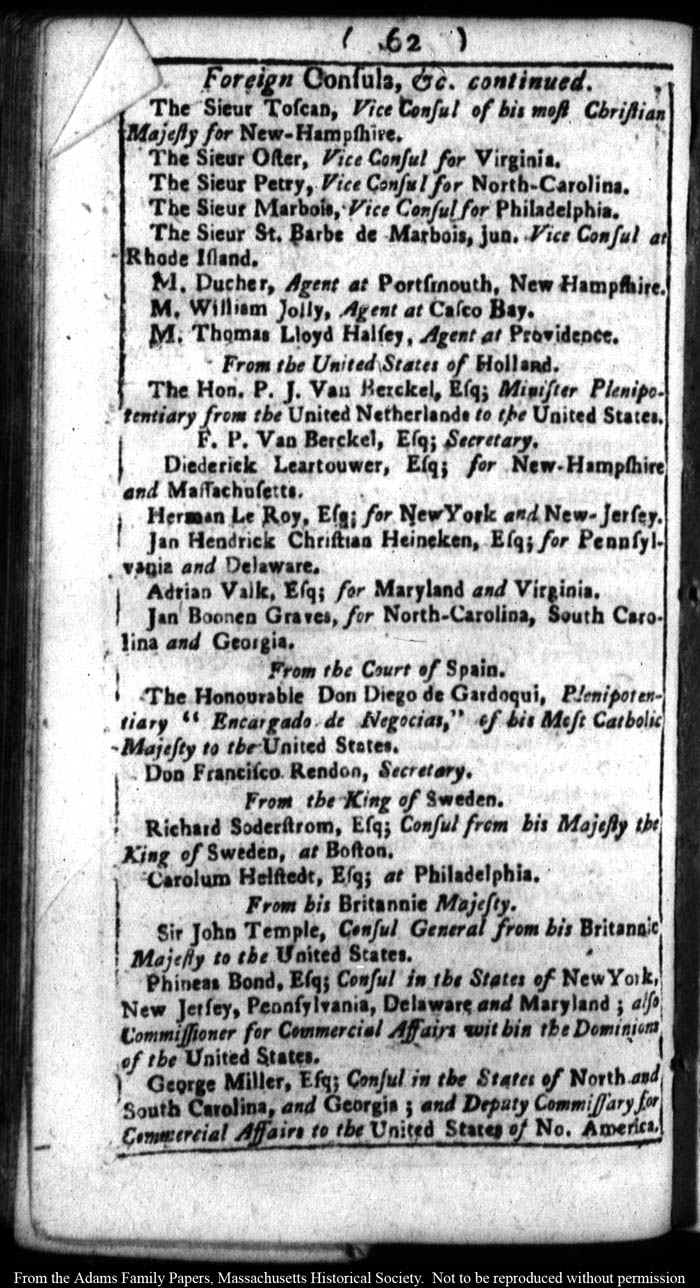 ( 62 )
Foreign Conſuls, &c. continued.
The Sieur Toſcan, Vice Conſul of his moſt Chriſtian
Majeſty for New-Hampſhire.
The Sieur Oſter, Vice Conſul for Virginia.
The Sieur Petry, Vice Conſul for North-Carolina.
The Sieur Marbois, Vice Conſul for Philadelphia.
The Sieur St. Barbe de Marbois, jun. Vice Conſul at
Rhode Iſland.
M. Ducher, Agent at Portſmouth, New Hampſhire.
M. William Jolly, Agent at Caſco Bay.
M. Thomas Lloyd Halſey, Agent at Providence.
From the United States of Holland.
The Hon. P. J. Van Berckel, Eſq; Miniſter Plenipo-
tentiary from the United Netherlands to the United States.
F. P. Van Berckel, Eſq; Secretary.
Diederick Leartouwer, Eſq; for New-Hampſhire
and Maſſachuſetts.
Herman Le Roy, Eſq; for New York and New-Jerſey.
Jan Hendrick Chriſtian Heineken, Eſq; for Pennſyl-
vania and Delaware.
Adrian Valk, Eſq; for Maryland and Virginia.
Jan Boonen Graves, for North-Carolina, South Caro-
lina and Georgia.
From the Court of Spain.
The Honourable Don Diego de Gardoqui, Plenipoten-
tiary "Encargado de Negocias," of his Moſt Catholic
Majeſty to the United States.
Don Franciſco Rendon, Secretary.
From the King of Sweden.
Richard Soderſtrom, Eſq; Conſul from his Majeſty the
King of Sweden, at Boſton.
Carolum Helſtedt, Eſq; at Philadelphia.
From his Britannic Majeſty.
Sir John Temple, Conſul General from his Britannic
Majeſty to the United States.
Phineas Bond, Eſq; Conſul in the States of New York,
New Jerſey, Pennſylvania, Delaware and Maryland; alſo
Commiſſioner for Commercial Affairs within the Dominions
of the United States.
George Miller, Eſq; Conſul in the States of North and
South Carolina, and Georgia; and Deputy Commiſſary for
Commercial Affairs to the United States of No. America.
From the Adams Family Papers, Massachusetts Historical Society. Not to be reproduced without permission